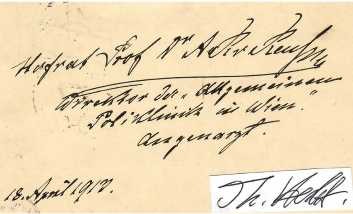 Hofrat Prof Dr A. v. Reuss
Direktor der "Allgemeinen
Poliklinik in Wien".
Augenarzt.
18. April 1912.
Th.